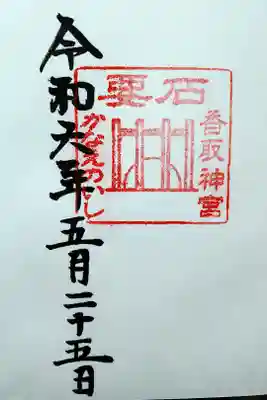 香取神宮
要石
かなめのいし
令和元年五月二十五日